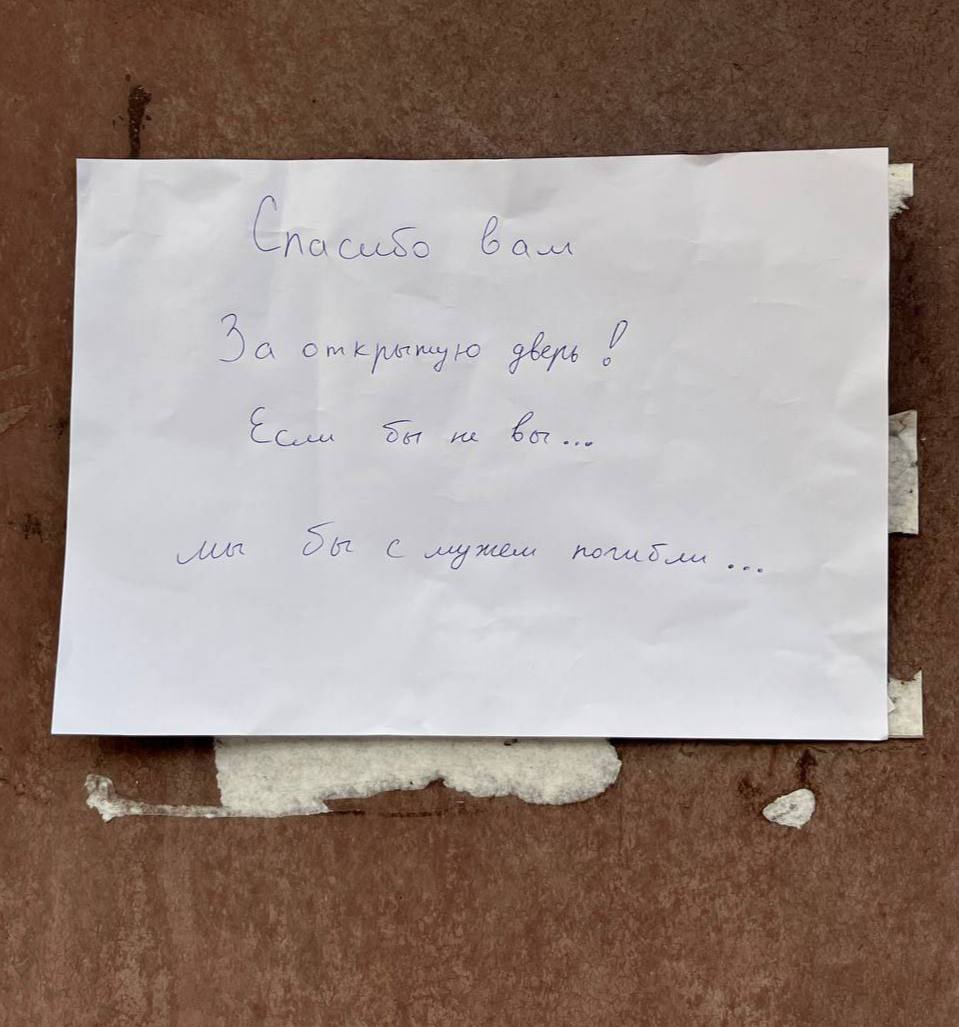 Спасибо вам
За открытую дверь!
Если бы не вы...
мы бы с мужем погибли...